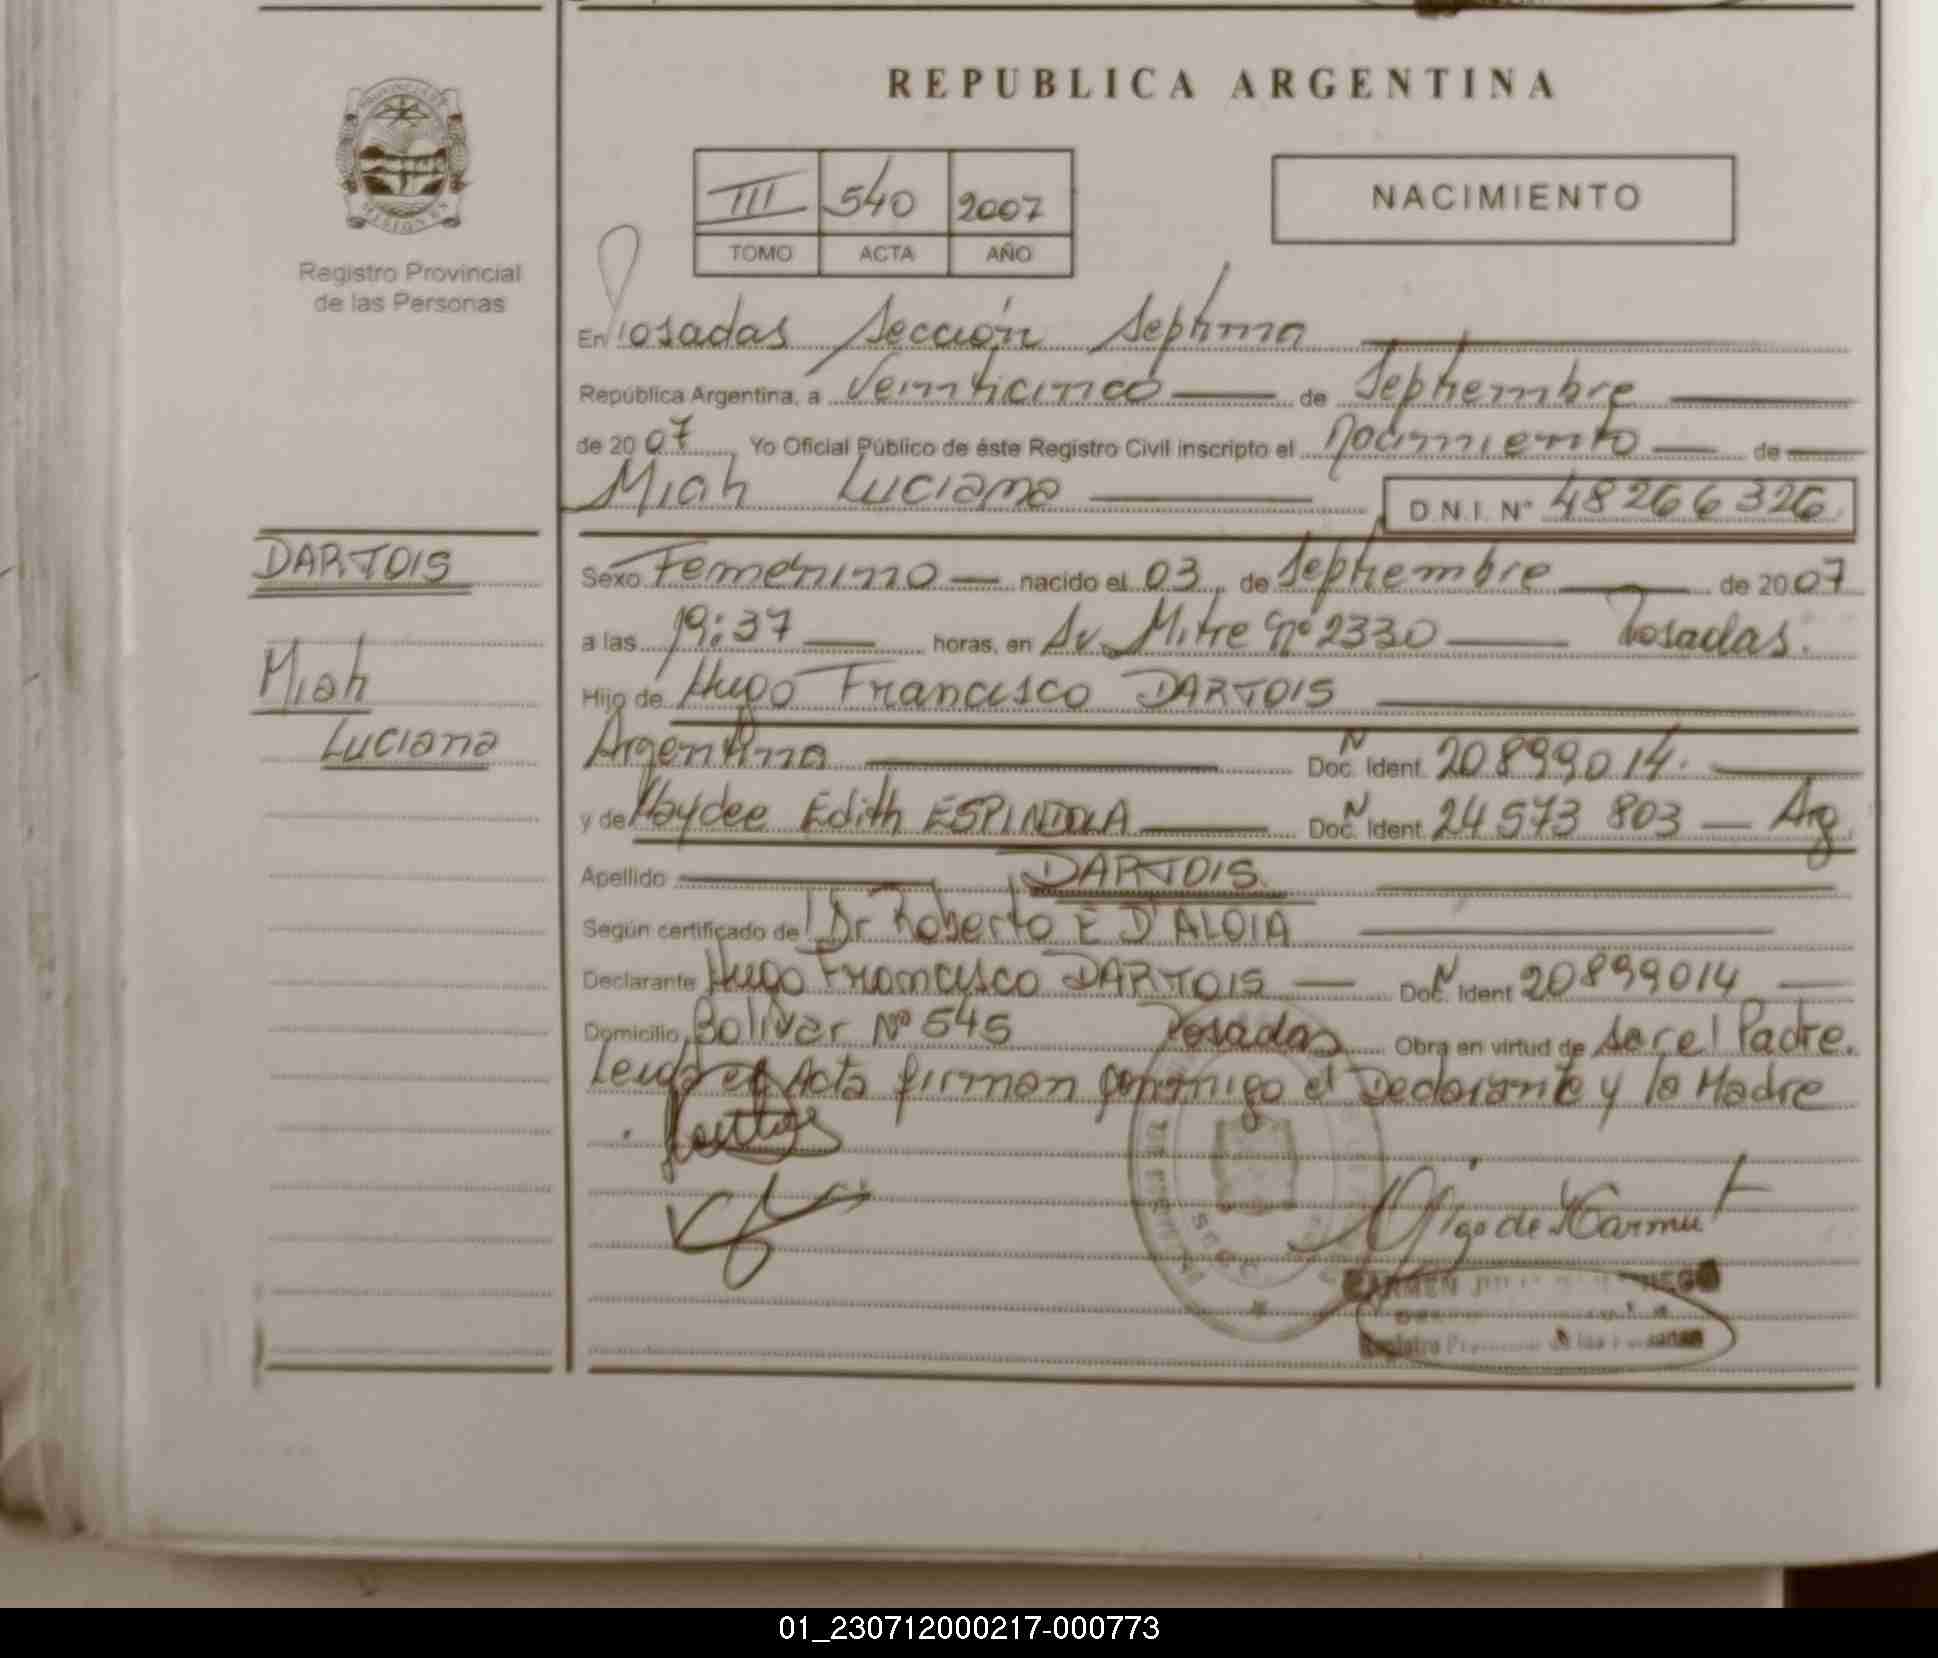 REPUBLICA ARGENTINA
III 540 2007
TOMO ACTA AÑO
NACIMIENTO
Registro Provincial
de las Personas
En Posadas Sección Septima
República Argentina, a Veinticinco de Septiembre
de 2007 Yo Oficial Público de éste Registro Civil inscripto el nacimiento de
Miah Luciana D.N.I. Nº 48266326
DARTOIS
Miah
Luciana
Sexo Femenino nacido el 03 de Septiembre de 2007
a las 19:37 horas, en Av. Mitre Nº 2330 Posadas.
Hijo de Hugo Francisco DARTOIS
Argentina Doc. N Ident. 20899014.
y de Haydee Edith ESPINDOLA Doc. N Ident. 24573803 Arg
Apellido DARTOIS.
Según certificado de Dr Roberto E D'ALOIA
Declarante Hugo Francisco DARTOIS Doc. N Ident 20899014
Domicilio Bolivar Nº 545 Posadas Obra en virtud de ser el Padre.
Leida el Acta firman conmigo el Declarante y la Madre
CARMEN
Registro
01_230712000217-000773